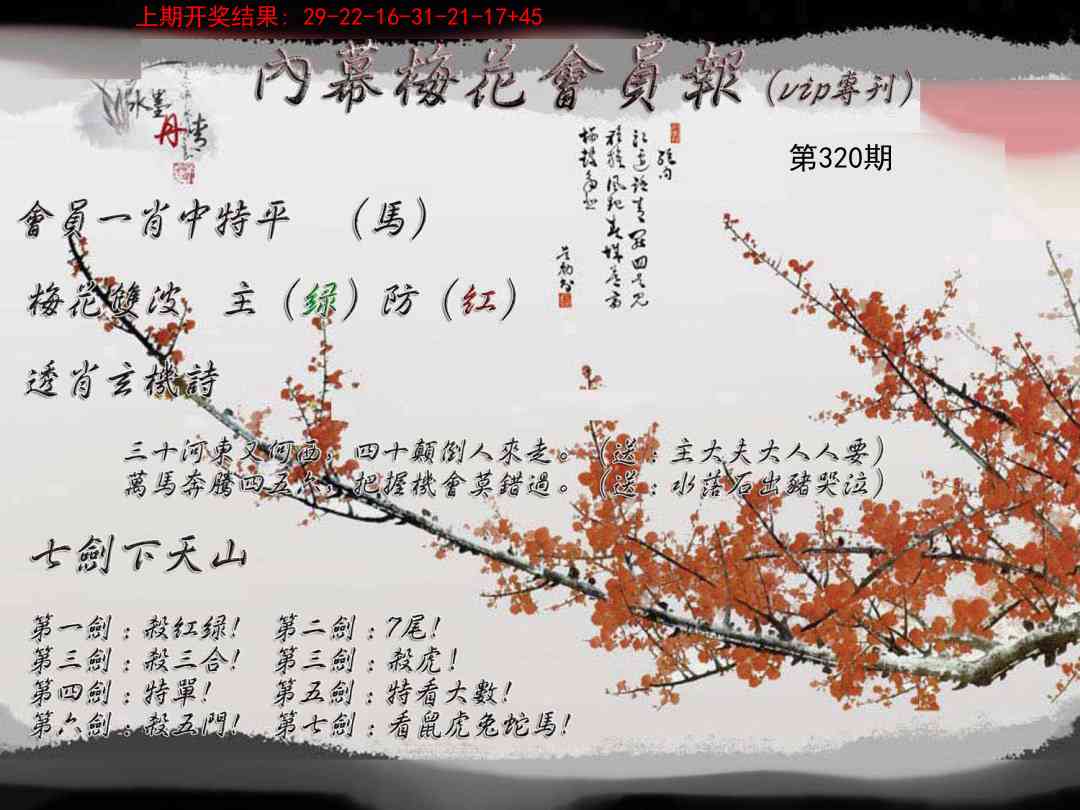 上期开奖结果: 29-22-16-31-21-17+45
內幕梅花會員報(vip專刊)
水墨丹青
第320期
會員一肖中特平 (馬)
梅花雙波 主(绿)防(红)
透肖玄機詩
三十河東又何西，四十顛倒人來走。(送:主大夫大人人要)
萬馬奔騰四五六，把握機會莫錯過。(送:水落石出豬哭泣)
七劍下天山
第一劍:殺红绿! 第二劍:7尾!
第三劍:殺三合! 第三劍:殺虎!
第四劍:特單! 第五劍:特看大數!
第六劍:殺五門! 第七劍:看鼠虎兔蛇馬!